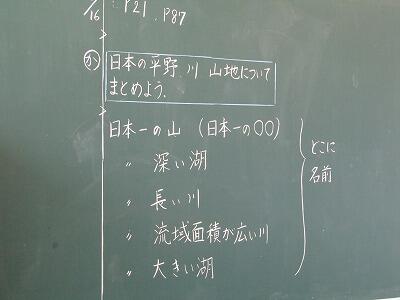 /16 P21 P87
か 日本の平野、川 山地について
まとめよう。
日本一の山 (日本一の○○)
〃 深い湖
〃 長い川
〃 流域面積が広い川
〃 大きい湖
どこに
名前